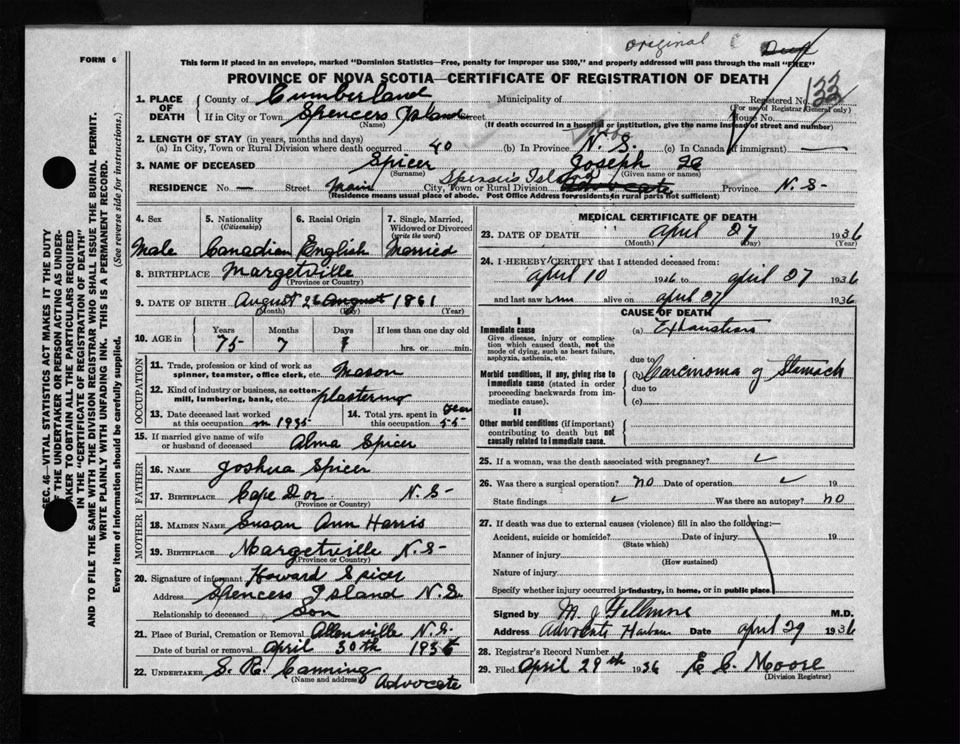 original
FORM 6
This form if placed in an envelope, marked "Dominion Statistics—Free, penalty for improper use $300," and properly addressed will pass through the mail "FREE"
PROVINCE OF NOVA SCOTIA—CERTIFICATE OF REGISTRATION OF DEATH
133
1. PLACE OF DEATH County of Cumberland Municipality of Registered No.
(For use of Registrar General only)
If in City or Town Spencers Island Street House No.
(Name) (If death occurred in a hospital or institution, give the name instead of street and number)
2. LENGTH OF STAY (in years, months and days)
(a) In City, Town or Rural Division where death occurred 40 (b) In Province N. S. (c) In Canada (if immigrant) —
3. NAME OF DECEASED Spicer Joseph
(Surname) (Given name or names)
RESIDENCE No. — Street Main City, Town or Rural Division Spencers Island Advocate Province N. S-
(Residence means usual place of abode. Post Office Address for residents in rural parts not sufficient)
4. Sex Male
5. Nationality (Citizenship) Canadian
6. Racial Origin English
7. Single, Married, Widowed or Divorced (write the word) Married
8. BIRTHPLACE Margetville
(Province or Country)
9. DATE OF BIRTH August 26 August 1861
(Month) (Day) (Year)
10. AGE in Years 75 Months 7 Days If less than one day old hrs. or min.
OCCUPATION
11. Trade, profession or kind of work as spinner, teamster, office clerk, etc. Mason
12. Kind of industry or business, as cotton-mill, lumbering, bank, etc. plastering
13. Date deceased last worked at this occupation in 1935
14. Total yrs. spent in this occupation 55 years
15. If married give name of wife or husband of deceased Alma Spicer
FATHER
16. NAME Joshua Spicer
17. BIRTHPLACE Cape Dor N. S-
(Province or Country)
MOTHER
18. MAIDEN NAME Susan Ann Harris
19. BIRTHPLACE Margetville N. S-
(Province or Country)
20. Signature of informant Howard Spicer
Address Spencers Island N. S.
Relationship to deceased Son
21. Place of Burial, Cremation or Removal Allenville N. S.
Date of burial or removal April 30th 1936
22. UNDERTAKER S. R. Canning
(Name and address) Advocate
MEDICAL CERTIFICATE OF DEATH
23. DATE OF DEATH April 27 1936
(Month) (Day) (Year)
24. I HEREBY CERTIFY that I attended deceased from:
April 10 1936 to April 27 1936
and last saw him alive on April 27 1936
CAUSE OF DEATH
I
Immediate cause (a) Exhaustion
Give disease, injury or complication which caused death, not the mode of dying, such as heart failure, asphyxia, asthenia, etc.
due to
Morbid conditions, if any, giving rise to immediate cause (stated in order proceeding backwards from immediate cause).
(b) Carcinoma of Stomach
due to
(c)
II
Other morbid conditions (if important) contributing to death but not causally related to immediate cause.
25. If a woman, was the death associated with pregnancy?
26. Was there a surgical operation? no Date of operation 19
State findings Was there an autopsy? no
27. If death was due to external causes (violence) fill in also the following:—
Accident, suicide or homicide? Date of injury 19
(State which)
Manner of injury
(How sustained)
Nature of injury
Specify whether injury occurred in industry, in home, or in public place
Signed by M. J. Fillmore M.D.
Address Advocate Harbour Date April 29 1936
28. Registrar's Record Number
29. Filed April 29th 1936 E C. Moore
(Division Registrar)
SEC. 46—VITAL STATISTICS ACT MAKES IT THE DUTY OF THE UNDERTAKER OR PERSON ACTING AS UNDERTAKER TO OBTAIN ALL THE PARTICULARS REQUIRED IN THE "CERTIFICATE OF REGISTRATION OF DEATH"
AND TO FILE THE SAME WITH THE DIVISION REGISTRAR WHO SHALL ISSUE THE BURIAL PERMIT.
WRITE PLAINLY WITH UNFADING INK. THIS IS A PERMANENT RECORD.
Every item of information should be carefully supplied. (See reverse side for instructions.)